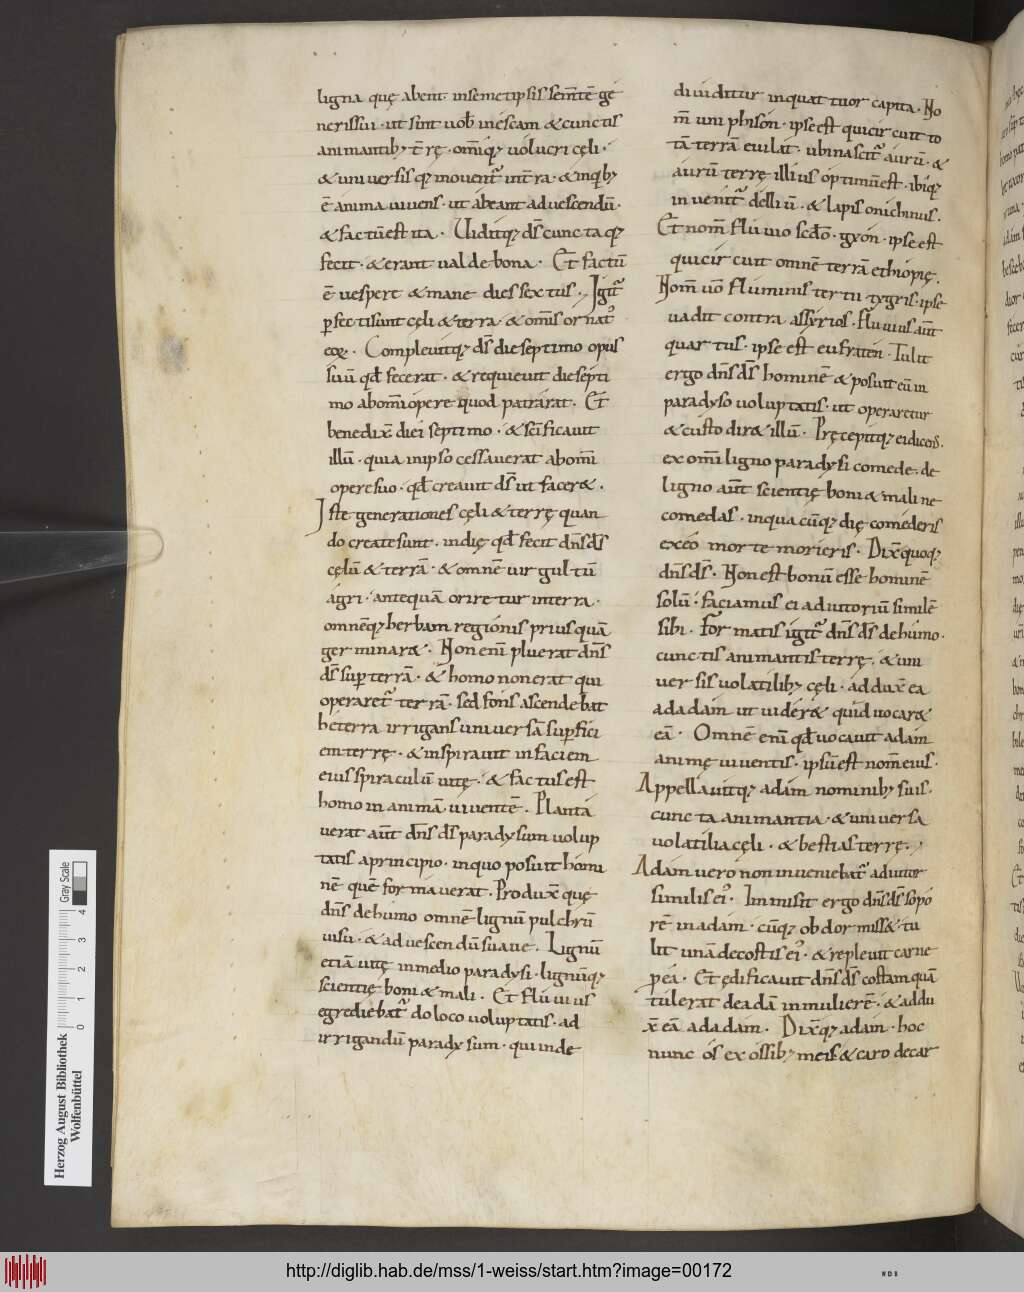 ligna quę abent· insemetipsis sem̅te̅ ge
nerissui· ut sint uob̅ inescam &cunctis
animantib; t̅rę· om̅iq; uolucri cęli·
&uniuersisq; mouent᷑ int̅ra· &inq;b;
e̅ anima uiuens· ut abeant aduescendu̅·
&factu̅est ita· Uiditq; ds̅ cuncta q;
fecit· &erant ualde bona· Et factu̅
e̅ uespere &mane dies sextus· Igit᷑
ꝑfectisunt cęli &terra· &om̅is ornat᷒
eoꝝ· Compleuitq; ds̅ die septimo opus
suu̅ qd̅ fecerat· &requieuit die septi
mo abom̅i opere quod patrarat· Et
benedix̅ diei septimo· &sc̅ificauit
illu̅· quia inipso cessauerat abom̅i
operesuo· qd̅ creauit ds̅ ut facer&·
Iste generationes cęli &terrę quan
do createsunt· indię qd̅ fecit dn̅s ds̅
cęlu̅ &terra̅· &omne̅ uirgultu̅
agri· antequa̅ orire tur interra·
omne̅q; herbam regionis priusqua̅
germinar&· Non eni̅ pluerat dn̅s
ds̅ sup̅ terra̅· &homo nonerat qui
operaret᷑ terra̅· sed fons ascendebat
heterra irrigans uniuersa̅ sup̅fici
em terrę· &inspirauit infaciem
eius spiraculu̅ uitę· &factus est
homo in anima̅ uiuente̅· Planta
uerat aut̅ dn̅s ds̅ paradysum uolup
tatis aprincipio· inquo posuit homi
ne̅ que̅ formauerat· Produx̅ quę
dn̅s dehumo omne̅ lignu̅ pulchru̅
uisu· &aduescendu̅ suaue· Lignu̅
etia̅ uitę inmedio paradysi· lignu̅q;
scientię boni &mali· Et fluuius
egrediebat᷑ doloco uoluptatis· ad
irrigandu̅ paradysum· qui inde
diuiditur inquattuor capita· No
m̅ uni phison· ipse est quicircuit to
ta̅ terra̅ euilat· ubinascit᷑ auru̅· &
auru̅ terrę illius optimu̅est· ibiq;
inuenit᷑ delliu̅· &lapis onichinus·
Et nom̅ fluuio scd̅o· gyon· ipse est
quicircuit omne̅ terra̅ ethiopię·
Nom̅ uo̅ fluminis tertii tygris· ipse
uadit contra assyrios· Fluuius aut̅
quartus· ipse est eufraten· Tulit
ergo dn̅s ds̅ homine̅ &posuit eu̅ in
paradyso uoluptatis· ut operaretur
&custodir& illu̅· Pręcepitq; ei dicens·
ex om̅i ligno paradysi comede· de
ligno aut̅ scientię boni &mali ne
comedas· inquacu̅q; dię comederis
exeo morte morieris· Dix̅quoq;
dn̅s ds̅· Non est bonu̅ esse homine̅
solu̅· faciamus ei adiutoriu̅ simile̅
sibi· Formatis igit᷑ dn̅s ds̅ dehumo·
cunctis animantis terrę· &uni
uersis uolatilib; cęli· addux̅ ea
adadam ut uider& quid uocar&
ea̅· Omne̅ eni̅ qd̅ uocauit adam
animę uiuentis· ipsu̅est nom̅ eius·
Appellauitq; adam nominib; suis·
cuncta animantia· &uniuersa
uolatilia cęli· &bestias terrę·
Adam uero non inueniebat᷑ adiutor
similis ei᷒· Immisit ergo dn̅s ds̅ sopo
re̅ inadam· cu̅q; obdormiss&· tu
lit una̅ decostis ei᷒· &repleuit carne
pea· Et ędificauit dn̅s ds̅ costam qua̅
tulerat deada̅ inmuliere̅· &addu
x̅ ea̅ adadam· Dix̅q; adam· hoc
nunc os ex ossib; meis &caro decar
Herzog August Bibliothek
Wolfenbüttel
0 1 2 3 4
Gray Scale
http://diglib.hab.de/mss/1-weiss/start.htm?image=00172